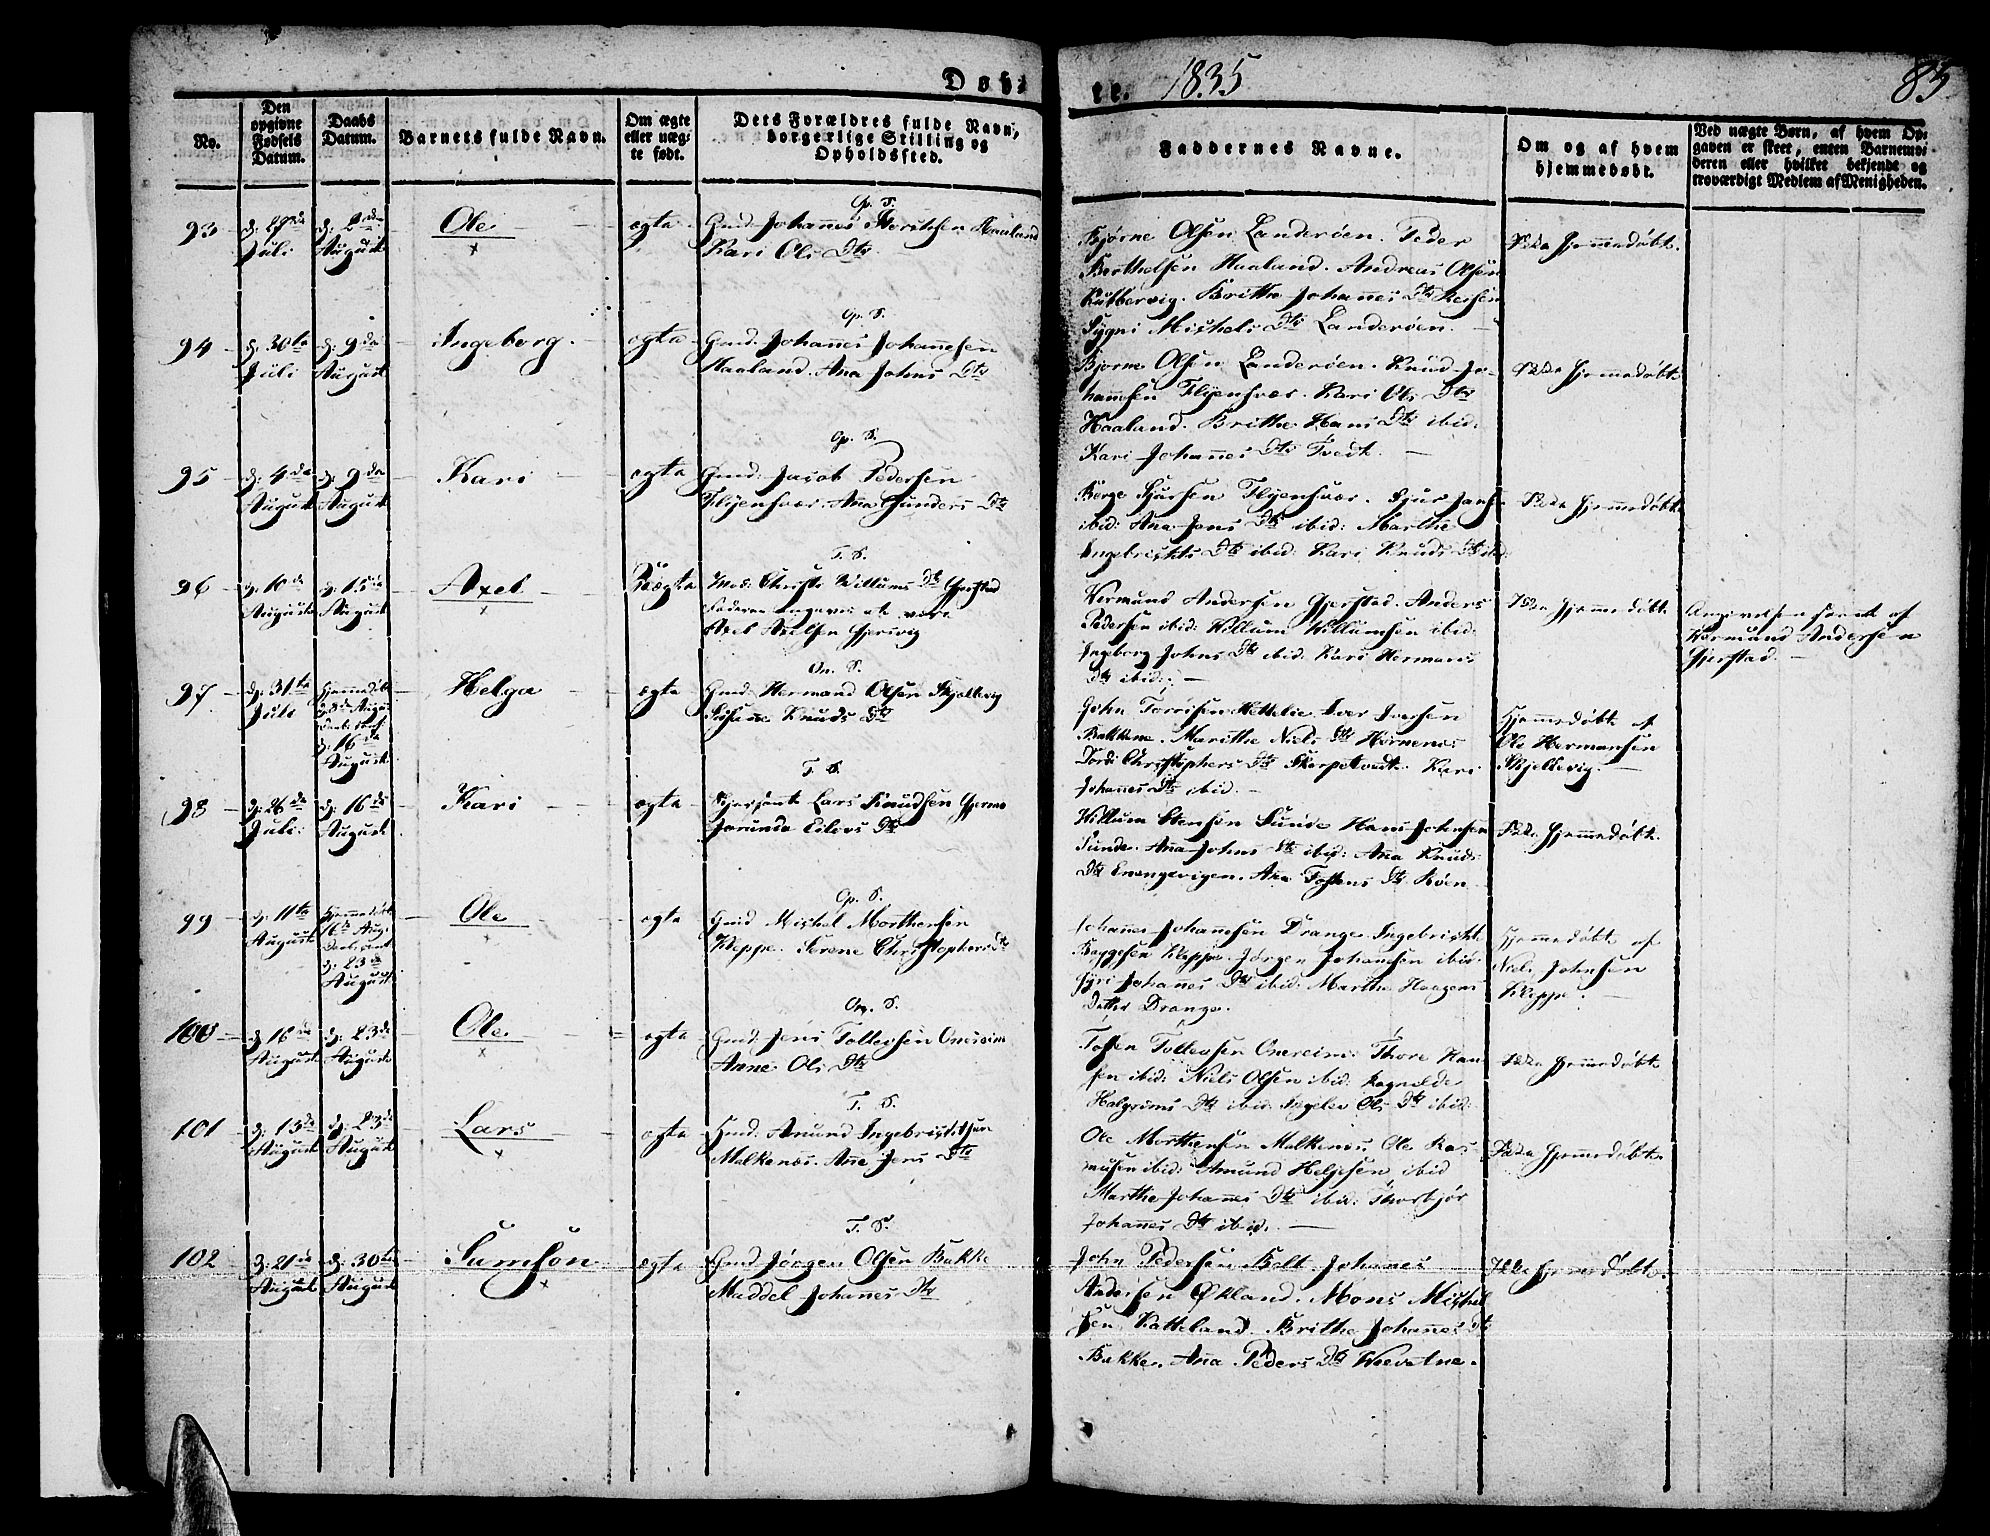 Døb-
te. 1835
83
No.
Den opgivne Fødsels Datum.
Daabs Datum.
Barnets fulde Navn.
Om ægte eller uæg-
te født.
Dets Forældres fulde Navn,
borgerlige Stilling og
Opholdssted.
Faddernes Navne.
Om og af hvem
hjemmedøbt.
Ved uægte Børn, af hvem Op-
gaven er skeet, enten Barnemo-
deren eller hvilket bekjendt og
troværdigt Medlem af Menigheden.
93
d: 29de Juli
August
Ole
ægte
Gmd: Johannes Haaland
Kari Ols Dtr
Bjørne Olsen Landerøen. Peder
Berthelsen Haaland. Andreas Olsen
Brithe Johannes Dtr
Mikkels Dtr Landerøen.
Ikke hjemmedøbt.
94
d: 30te Juli
d: 9de August
Ingeborg.
ægte
Gmd: Johannes Johannesen
Haaland. Ana Johns Dtr
Bjørne Olsen Landerøen. Knud Jo-
hannsen Flyensvær. Kari Ols Dtr
Haaland. Brithe Hans Dtr ibid:
Kari Johannes Dtr Tvedt.
Ikke hjemmedøbt
95
d: 4de August
d: 9de August
Kari
ægte
Gmd: Jacob Pedersen
Flyensvær. Ana Gunders Dtr
Børge Sjursen Flyensvær. Sjur Jans:
ibid: Ana Jens Dtr ibid: Marthe
Ingebrigts Dtr ibid: Kari Knuds Dtr ibid:
Ikke hjemmedøbt
96
d: 10de August
d: 15de August
Axel
T. S.
Uægte
Christi Willums Dtr Gjerstad
Faderen angaves at være
Axel Axelsen Gjervig
Vermund Andersen Gjerstad. Anders
Pedersen ibid: Willum Willumsen ibid:
Ingeborg Johns Dtr ibid. Kari Hermans
Dtr ibid:
Ikke hjemmedøbt
Angivelsen skeet af
Vermund Andersen
Gjerstad.
97
d: 31te Juli
Hjemmedøbt
d: 16de August
Helga
On. S.
ægte
Gmd: Hermand Olsen Skjellevig
Knuds Dtr
John Torrisen Iver Iversen
Bakkene. Marithe Niels Dtr
Christophers Dtr Skorpetvedt. Kari
Johannes Dtr ibid.
Hjemmedøbt af
Ole Hermansen
Skjellevig.
98
d: 26de Juli
d: 16de August
Kari
T. S.
ægte
Lars Knudsen
Eilevs Dtr
Willum Stensen Sunde Hans Johnsen
Sunde. Ana Johns Dtr ibid: Ana Knuds
Dtr Enangevigen. Ana Dtr Røen
Ikke hjemmedøbt.
99
d: 11te August
Hjemmedøbt
d: 23de August
Ole
ægte
Gmd Mikkel Morthensen
Kleppe. Serene Christophers Dtr
Johannes Johannesen Drange. Ingebrigt
Kleppe. Jørgen Johannesen ibid.
Johannes Dtr ibid: Marthe Haagens
Datter Drange.
Hjemmedøbt af
Niels Johnsen
Kleppe.
100
d: 16de August
d: 23de August
Ole
On. S.
ægte
Gmd: Jens Tollevsen Onereim
Anne Ols Dtr
Tosten Tollevsen Onereim. Thore Han-
sen ibid: Niels Olsen ibid: Ragnilde
Halgrims Dtr ibid: Ingelev Ols Dtr ibid.
Ikke hjemmedøbt
101
d: 13de August
d: 23de August
Lars
T. S.
ægte
Gmd: Amund Ingebrigtsen
Malkenes. Ane Jens Dtr
Ole Morthensen Malkenes. Ole Ras-
musen ibid: Amund Helgesen ibid
Marthe Johannes Dtr ibid: Thorbjør
Johannes Dtr ibid.
Ikke hjemmedøbt.
102
d: 21de August
d: 30te August
Samson
T. S.
ægte
Gmd Jørgen Olsen Bakke
Maddel Johannes Dtr
John Pedersen Johannes
Andersen Økland. Mons Mikkel
sen Katteland. Brithe Johannes Dtr
Bakke. Ana Peders Dtr
Ikke hjemmedøbt.